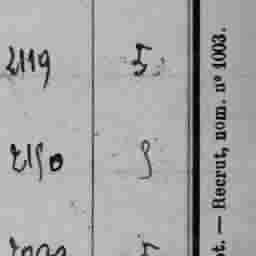 2119 5
2150 5
— Recrut, nom. nº 1003.